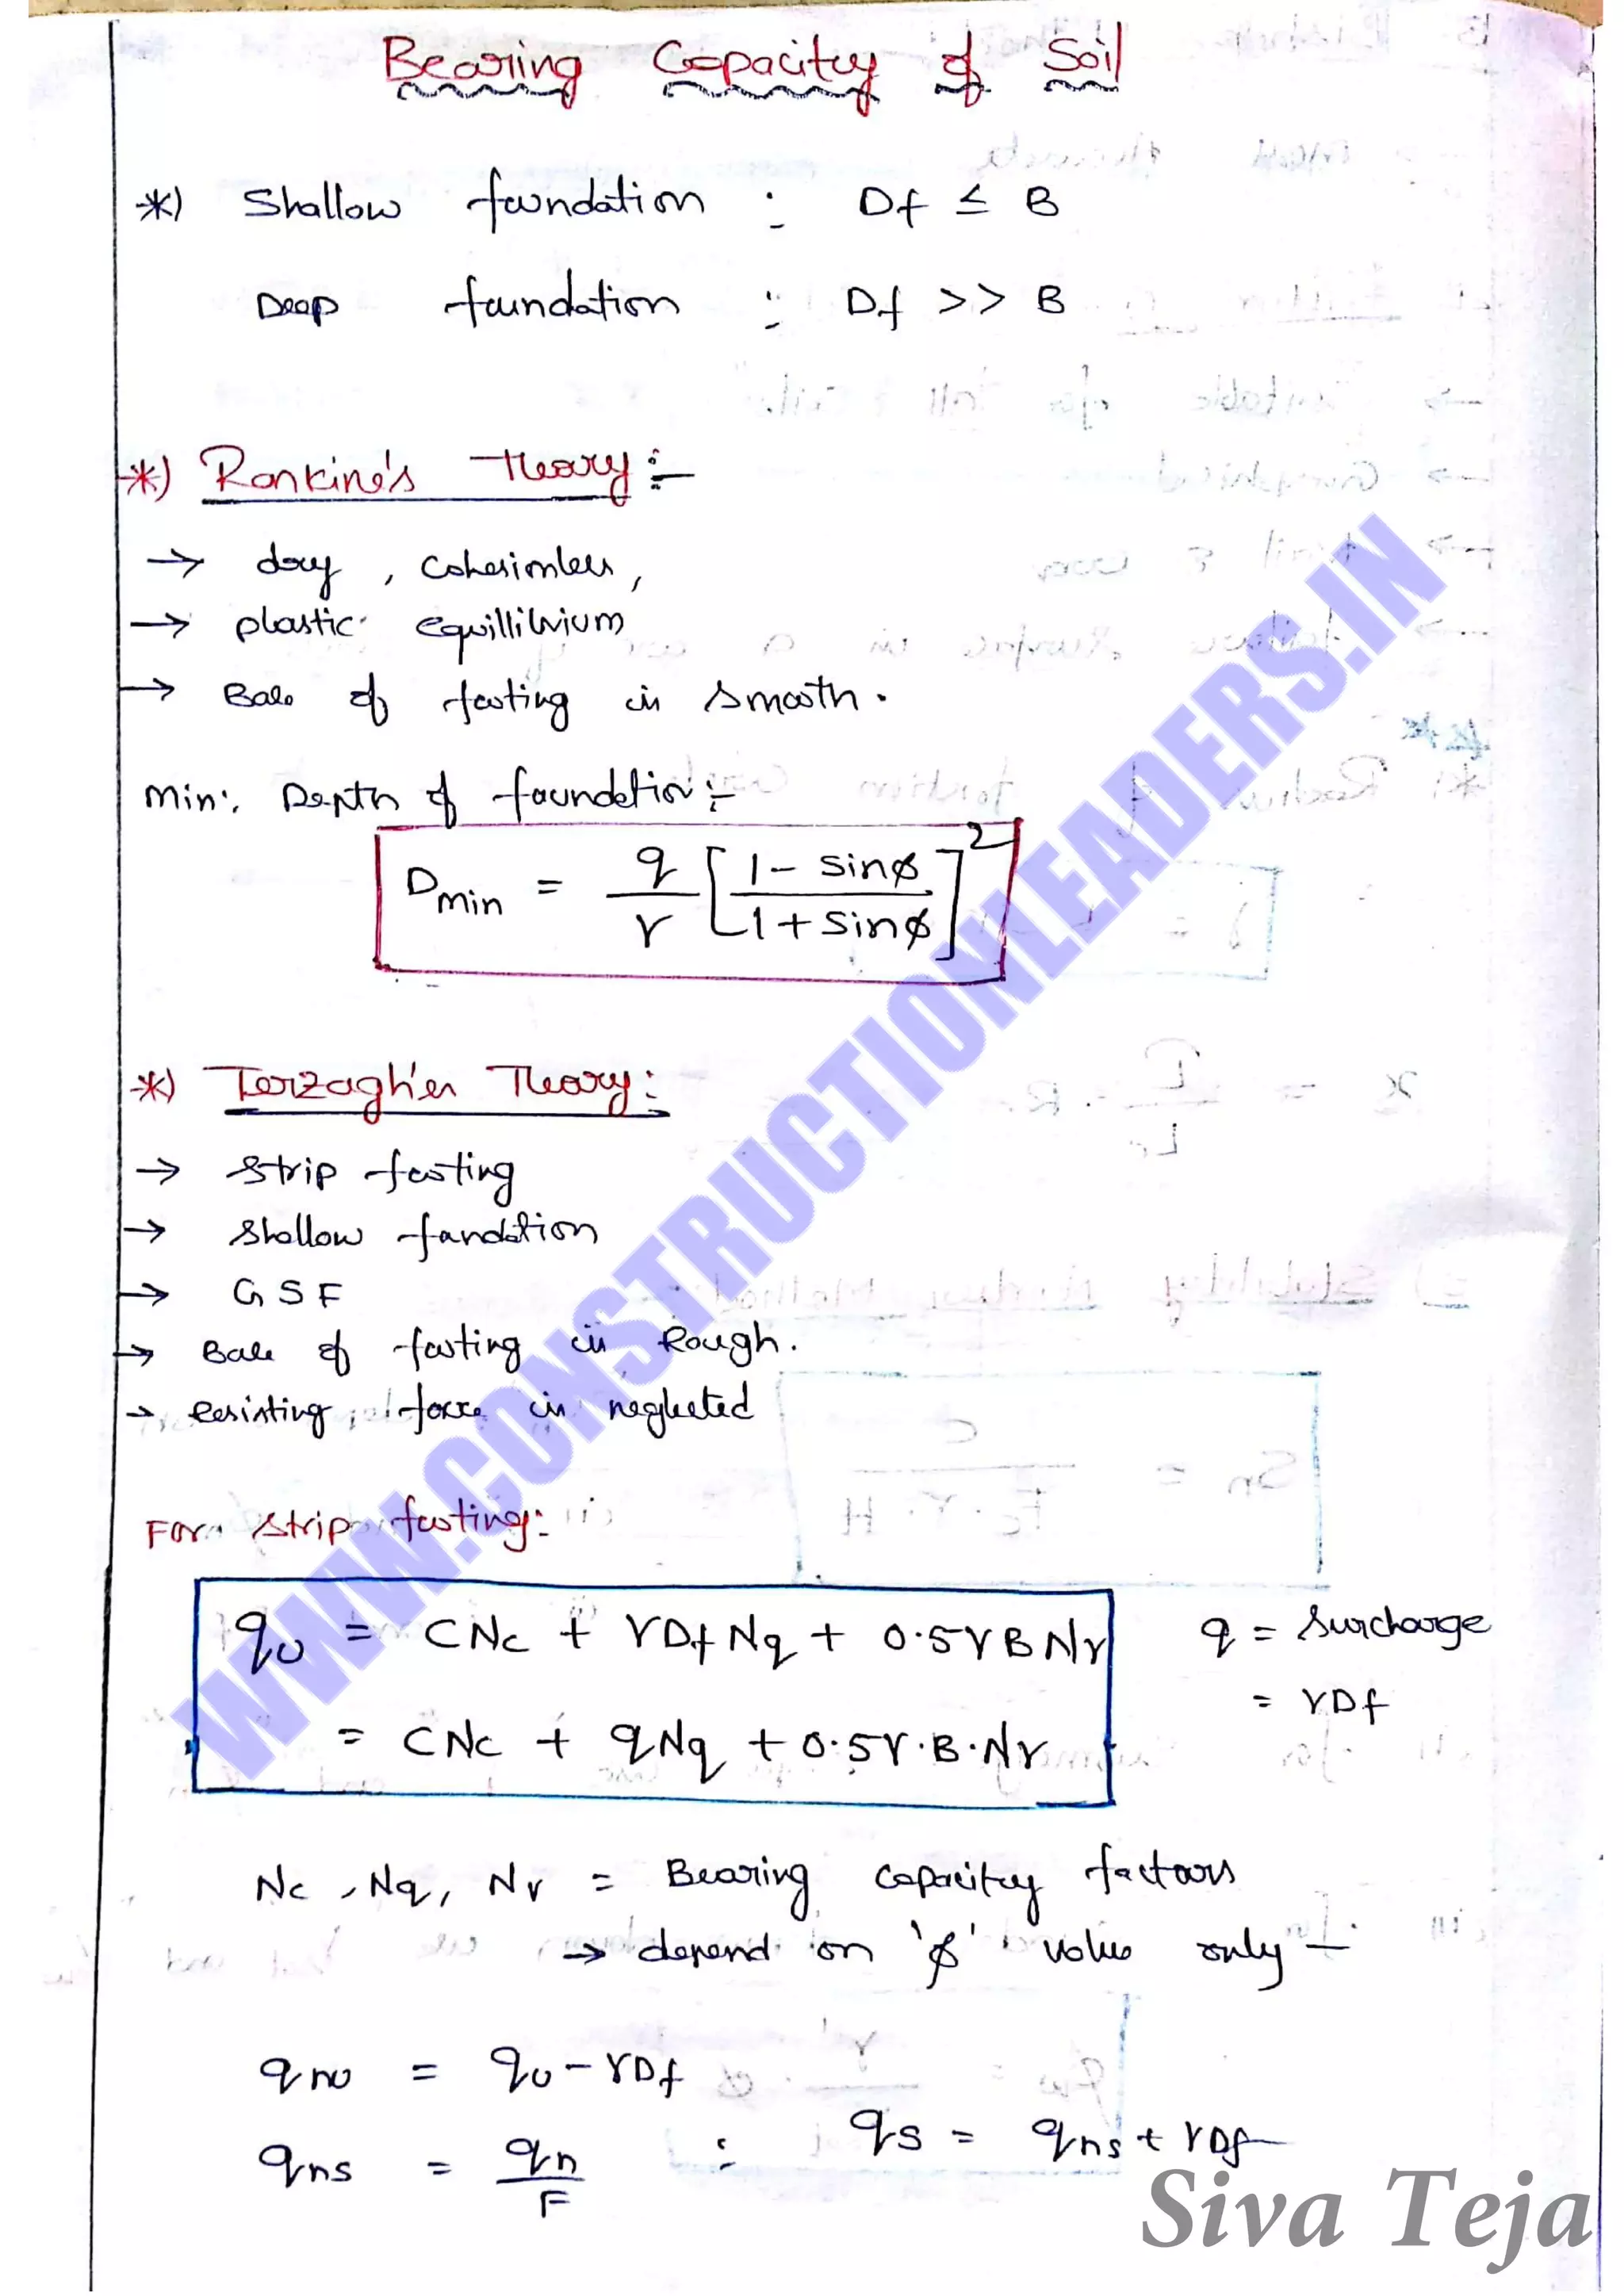 Bearing Capacity of Soil
*) Shallow foundation : Df ≤ B
Deep foundation : Df >> B
*) Rankine's Theory :-
→ dry, Cohesionless,
→ plastic equillibrium
→ Base of footing is smooth.
min. Depth of foundation :-
Dmin = q/γ [1 - sinφ / 1 + sinφ]²
*) Terzaghi's Theory :
→ Strip footing
→ Shallow foundation
→ GSF
→ Base of footing is Rough.
→ Resisting force is neglected
For strip footing:
qu = CNc + γDf Nq + 0.5γBNγ
q = Surcharge
= γDf
= CNc + qNq + 0.5γ.B.Nγ
Nc, Nq, Nγ = Bearing capacity factors
→ depend on 'φ' value only
qnu = qu - γDf
qns = qn/F : qs = qns + γDf
Siva Teja
WWW.CONSTRUCTIONLEADERS.IN